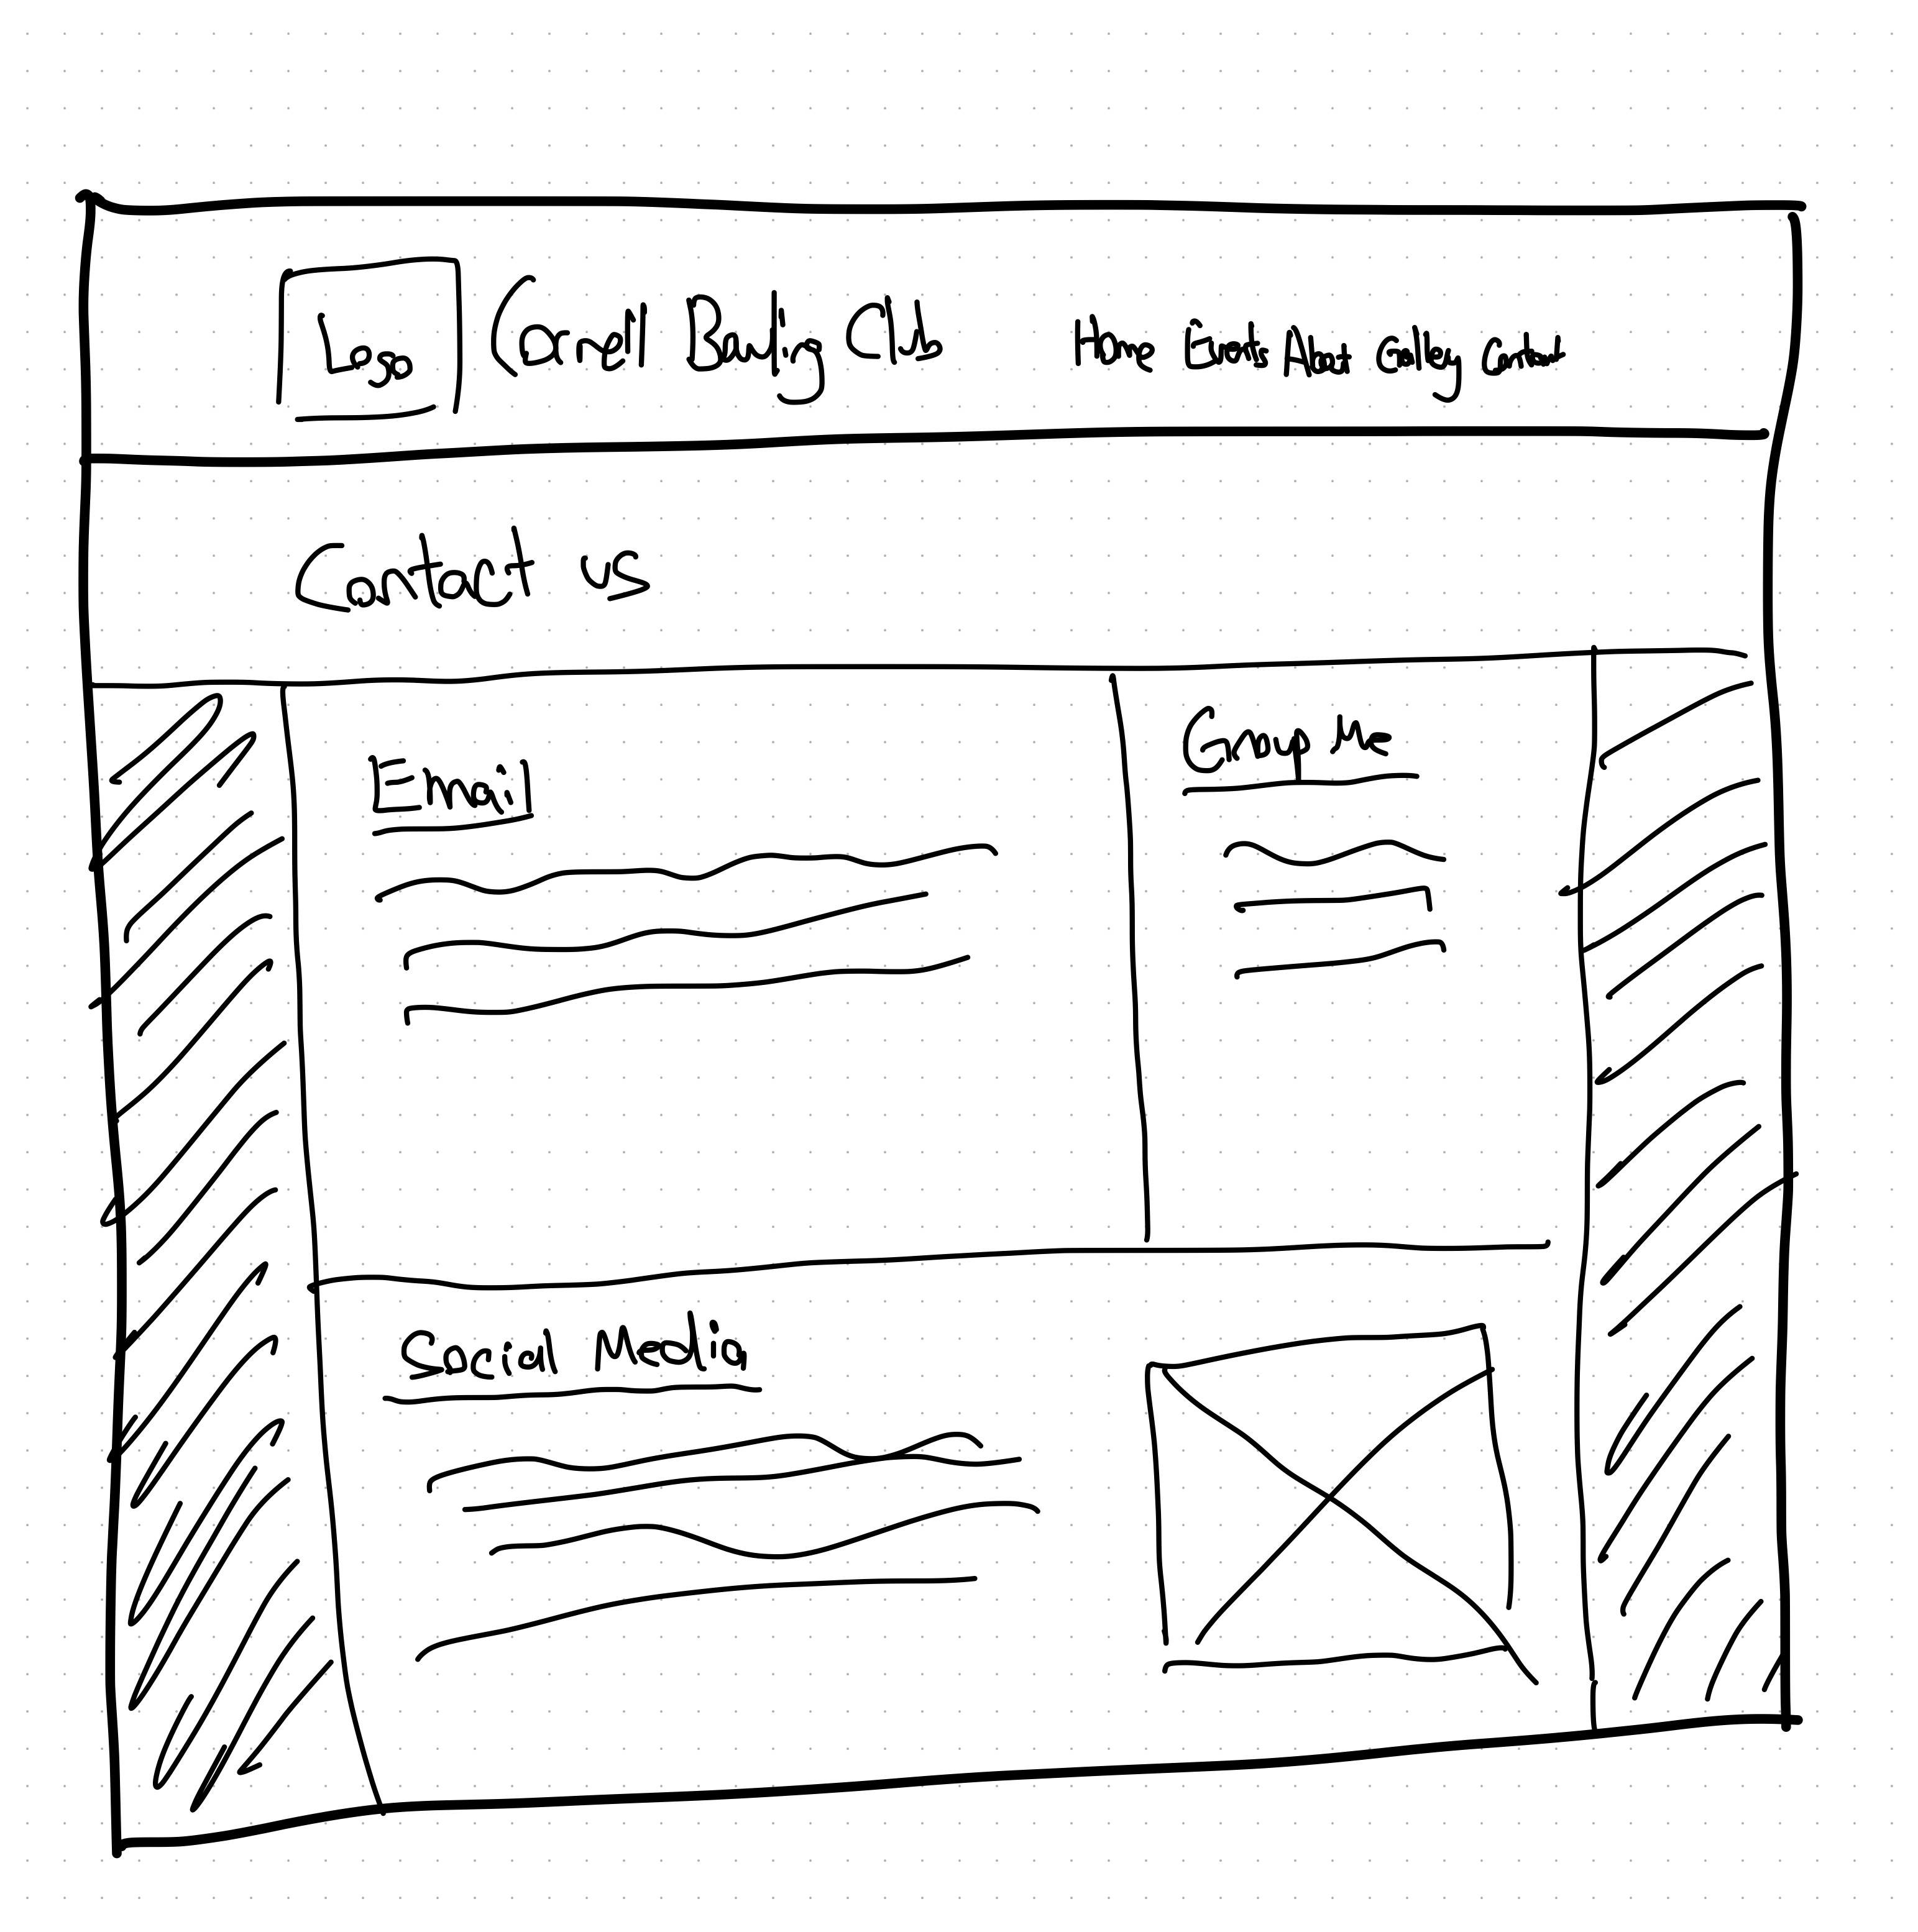 Logo
Cornell Bowling Club
Home Events About Gallery Contact
Contact us
Email
GroupMe
Social Media